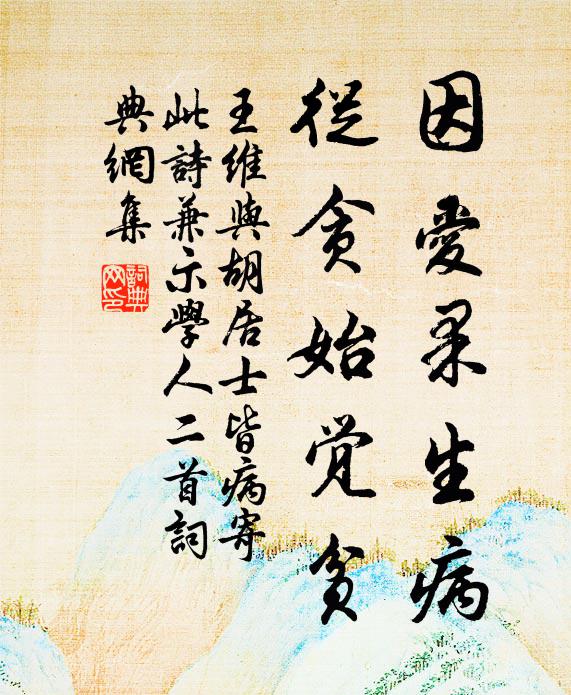 因愛果生病
從貪始覺貧
王維與胡居士皆病寄
此詩兼示學人二首詞
典網集
詞典
网印